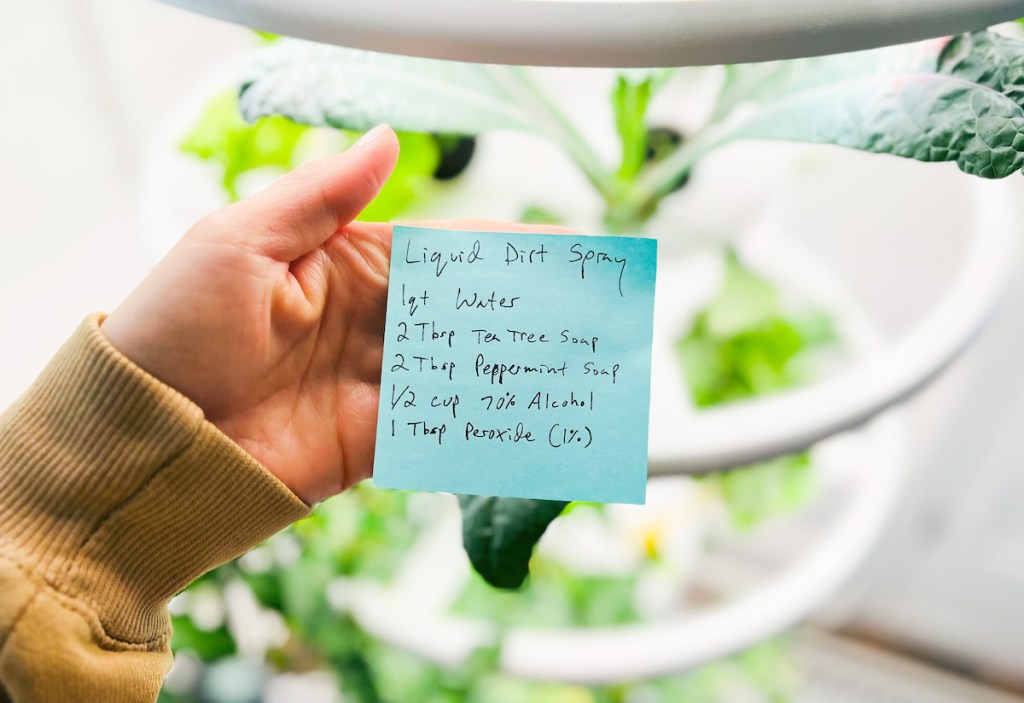 Liquid Dirt Spray
1qt Water
2 Tbsp Tea Tree Soap
2 Tbsp Peppermint Soap
1/2 cup 70% Alcohol
1 Tbsp Peroxide (1%)